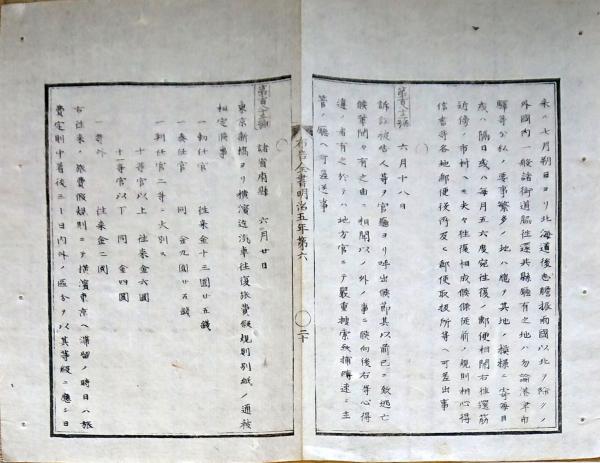 来ル七月朔日ヨリ北海道後志膽振兩國以北ヲ除クノ
外國内一般諸街道脇往還共縣廳有之地ハ勿論港津市
驛等公私ノ要事繁多ノ地ハ悉ク其地ノ模様ニ寄毎日
或ハ隔日或ハ毎月五六度宛往復ノ郵便相開右往還筋
近傍ノ市村ヘモ夫々往復相成候條従前ノ規則相心得
信書等各地郵便役所及ヒ郵便取扱所等ヘ可差出事
六月十八日
訴訟被告人等ヲ官廳ヨリ呼出候節其以前已ニ欽逃亡
候輩間々有之由ニ相聞以ノ外ノ事ニ候向後右等心得
違ノ者有之於テハ地方官ニテ嚴重捜索紮捕時速ニ主
管ノ廳ヘ可差送事
布告全書明治五年第六
二十
諸省府縣 六月廿日
東京新橋ヨリ横濱迄汽車往復旅費假規則別紙ノ通被
相定候事
一勅任官 往来金十三圓廿五錢
一奏任官 同 金九圓廿五錢
一判任官二等ニ大別ス
十等官以上 往来金六圓
十一等官以下 同 金四圓
一等外 往来金二圓
右往来ノ旅費假規則ニテ横濱東京ヘ滞留ノ時日ハ旅
費定則中着後三十日内外ノ區分ヲ以其等級ニ應シ日